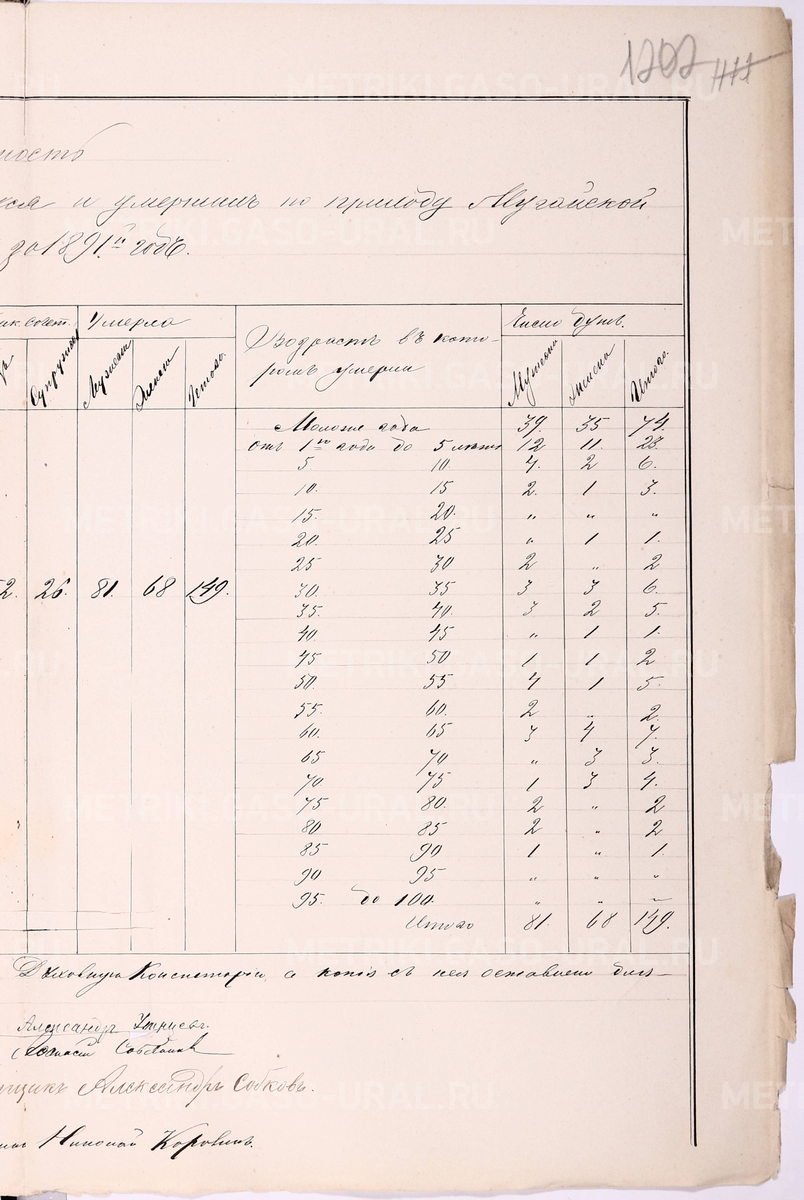 1202
ность
ихся и умершихъ по приходу Мугайской
за 1891й годъ.
Умерло
Супружес
Мужеска
Женска
Итого.
Возрастъ въ кото-
ромъ умерли
Число душъ.
Мужеска
Женска
Итого.
Моложе года 39. 35 74.
Отъ 1го года до 5 лѣтъ 12 11. 23.
5 10. 4. 2 6.
10. 15 2. 1 3.
15. 20. " " "
20. 25 " 1 1.
25 30 2 " 2
2. 26. 81. 68 149.
30. 35 3 3 6.
35. 40. 3 2 5.
40 45 " 1 1.
45 50 1 1 2
50. 55 4 1 5.
55. 60. 2 " 2.
60. 65 3 4 7.
65 70 " 3 3.
70 75 1 3 4.
75 80. 2 " 2
80 85 2 " 2
85 90 1 " 1.
90 95 " " "
95. до 100. " " "
Итого 81. 68 149.
Духовную Консисторію, а копія съ нея оставлена
Александръ
Александръ Собковъ.
Николай Коровинъ.
METRIKI.GASO-URAL.RU